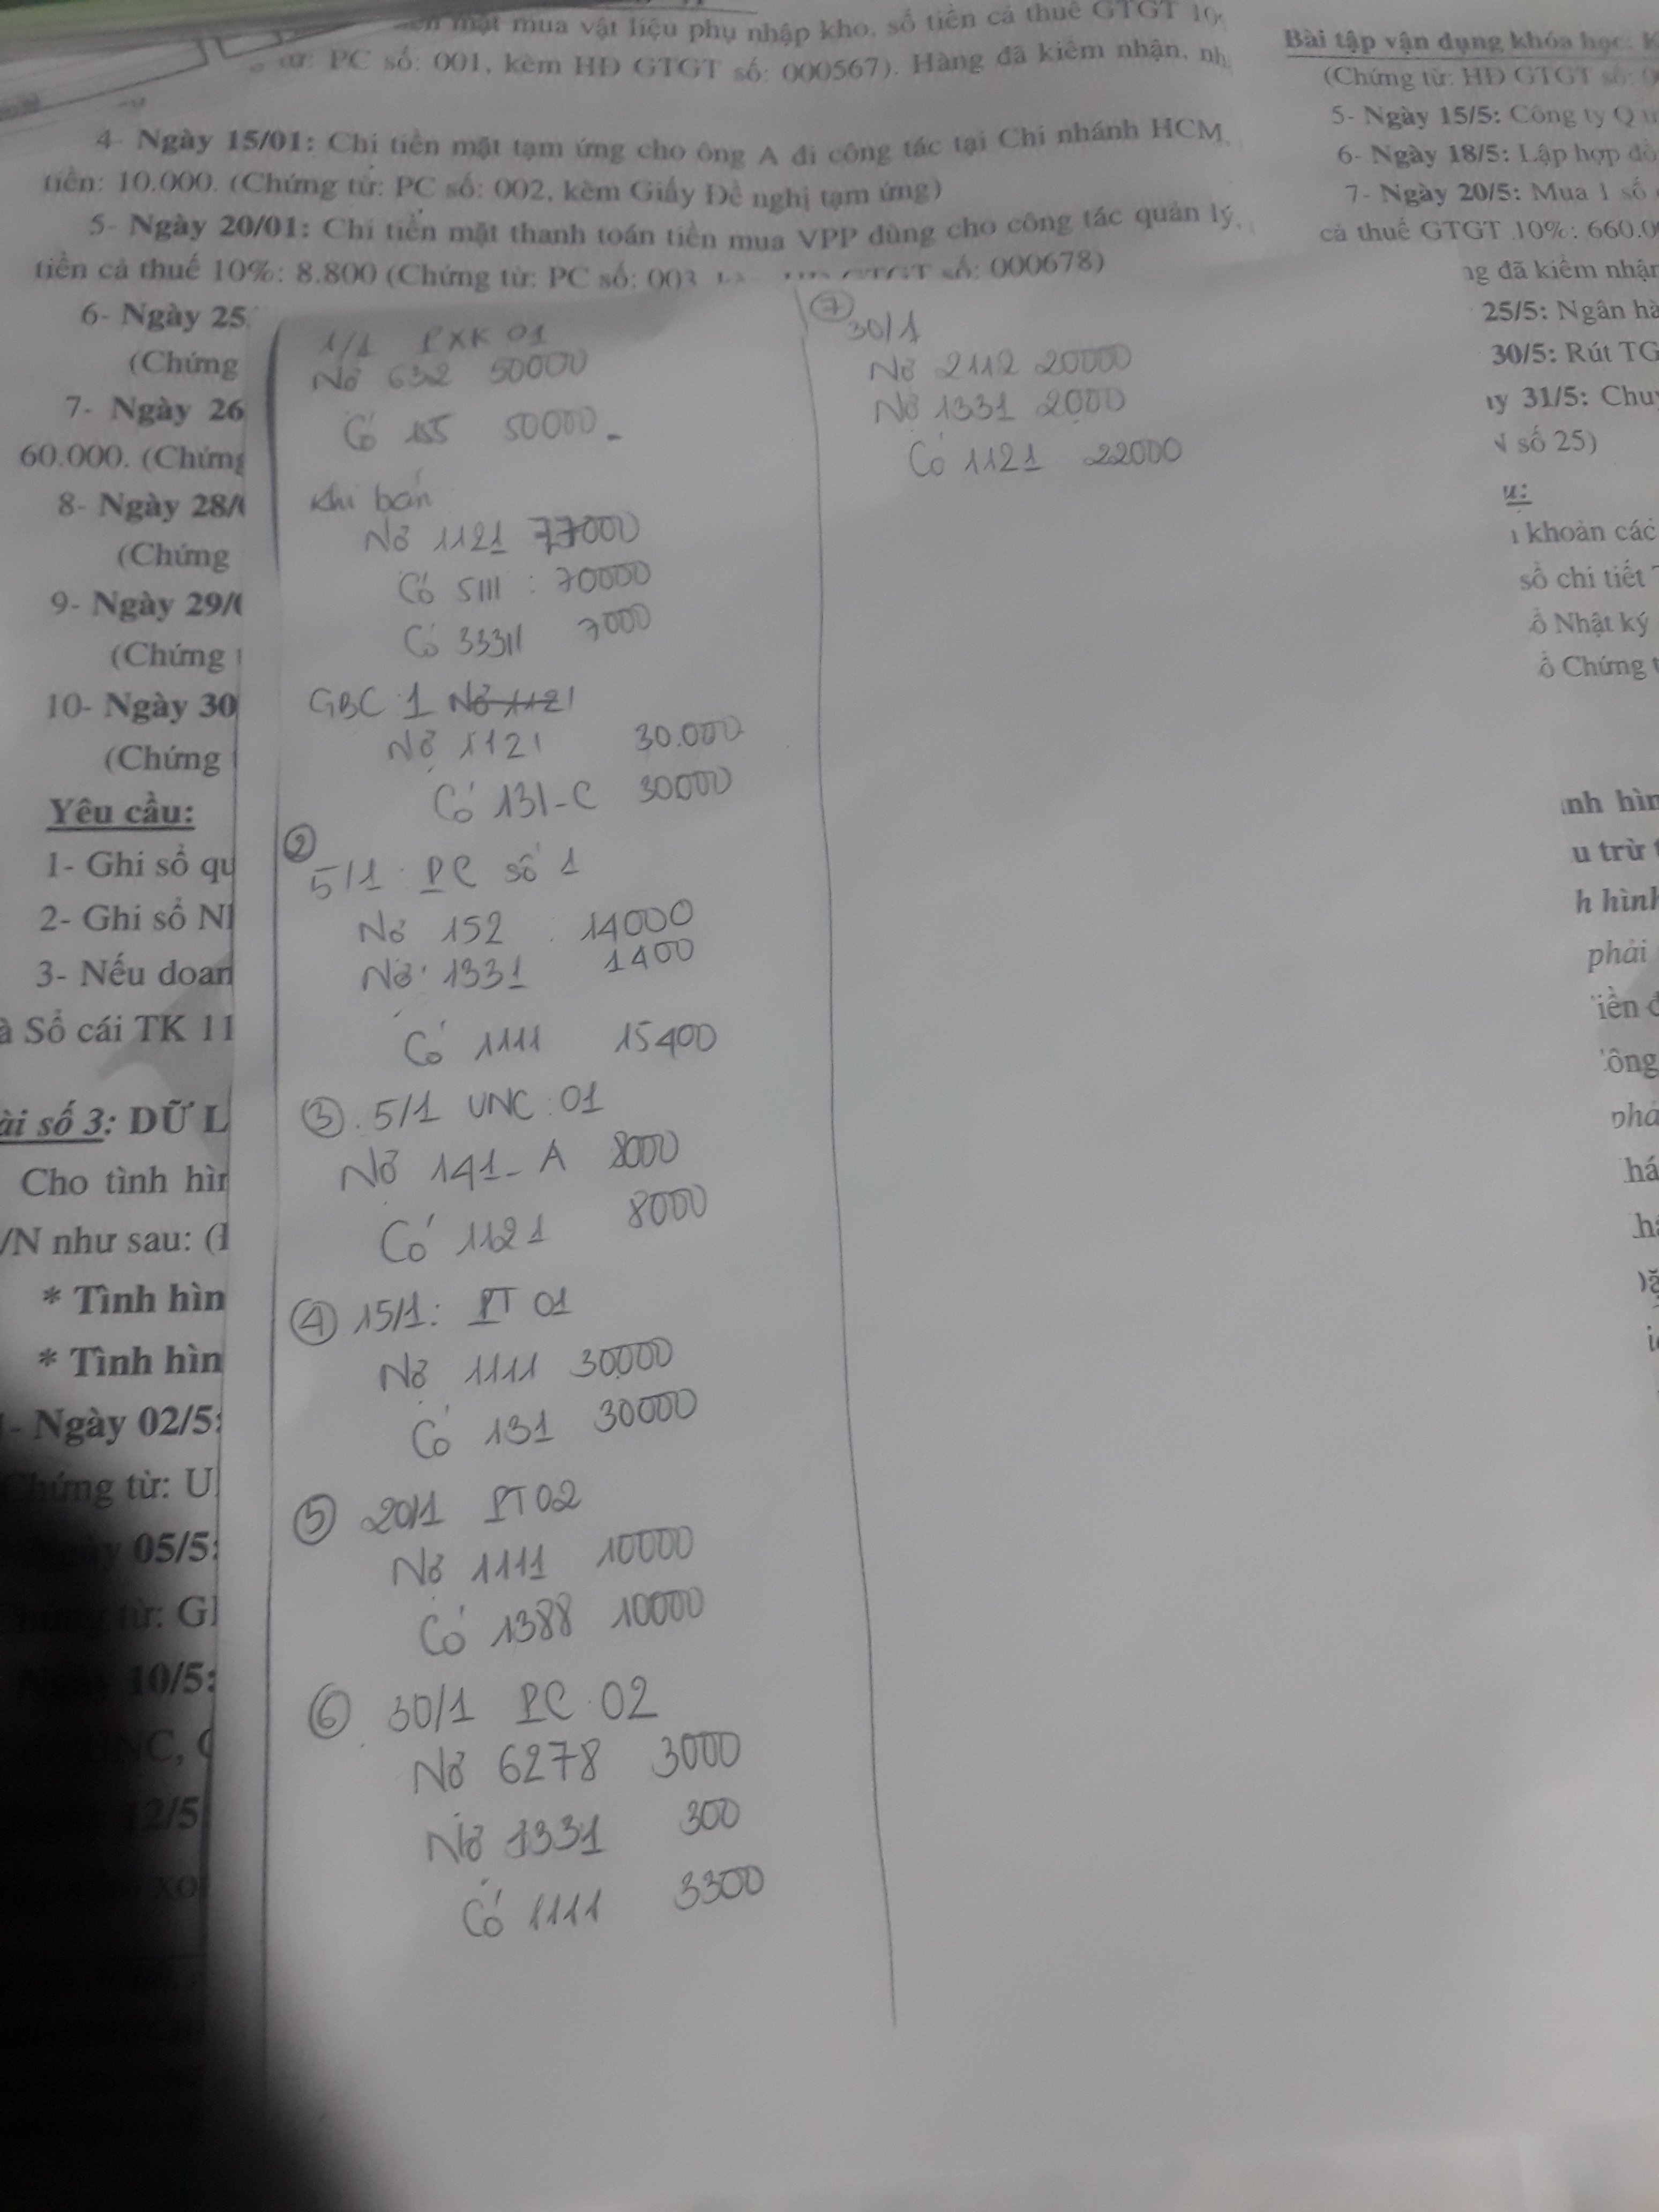 mặt mua vật liệu phụ nhập kho, số tiền cả thuế GTGT 10
từ: PC số: 001, kèm HĐ GTGT số: 000567). Hàng đã kiểm nhận, nh
4- Ngày 15/01: Chi tiền mặt tạm ứng cho ông A đi công tác tại Chi nhánh HCM,
tiền: 10.000. (Chứng từ: PC số: 002, kèm Giấy Đề nghị tạm ứng)
5- Ngày 20/01: Chi tiền mặt thanh toán tiền mua VPP dùng cho công tác quản lý,
tiền cả thuế 10%: 8.800 (Chứng từ: PC số: 003 GTGT số: 000678)
6- Ngày 25
(Chứng
7- Ngày 26
60.000. (Chứng
8- Ngày 28/
(Chứng
9- Ngày 29/
(Chứng
10- Ngày 30
(Chứng
Yêu cầu:
1- Ghi sổ qu
2- Ghi sổ N
3- Nếu doan
à Sổ cái TK 11
ài số 3: DỮ L
Cho tình hìn
VN như sau: (
* Tình hìn
* Tình hìn
- Ngày 02/5:
Chứng từ: U
Ngày 05/5:
từ: G
Ngày 10/5:
UNC,
12/5
1/1 PXK 01
Nợ 632 50000
Có 155 50000
Khi bán
Nợ 1121 77000
Có 5111 : 70000
Có 33311 7000
GBC 1 Nợ 1121
Nợ 1121 30.000
Có 131-C 30000
②
5/1 : PC số 1
Nợ 152 14000
Nợ 1331 1400
Có 1111 15400
③ 5/1 UNC: 01
Nợ 141-A 8000
Có 1121 8000
④ 15/1: PT 01
Nợ 1111 30000
Có 131 30000
⑤ 20/1 PT 02
Nợ 1111 10000
Có 1388 10000
⑥ 30/1 PC 02
Nợ 6278 3000
Nợ 1331 300
Có 1111 3300
⑦
30/1
Nợ 2112 20000
Nợ 1331 2000
Có 1121 22000
Bài tập vận dụng khóa học: K
(Chứng từ: HĐ GTGT số: 0
5- Ngày 15/5: Công ty Q
6- Ngày 18/5: Lập hợp đồ
7- Ngày 20/5: Mua 1 số
cả thuế GTGT 10%: 660.0
ng đã kiểm nhận
25/5: Ngân hà
30/5: Rút TG
y 31/5: Chu
số 25)
u:
khoản các
sổ chi tiết
ổ Nhật ký
ổ Chứng t
nh hìn
u trừ
h hình
phải
iền
ông
phả
há